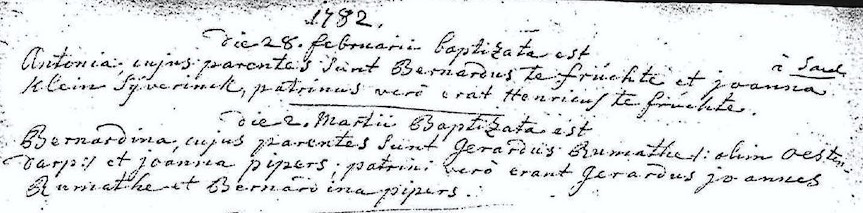 1782.
die 28. februarii baptizata est
Antonia, cujus parentes sunt Bernardus te früchte et joanna
Klein Syverinck, patrinus verò erat Henricus te früchte.
die 2. Martii Baptizata est
Bernardina, cujus parentes sunt Gerardus Rumathe /: olim Oesten-
darp :/ et joanna pipers; patrini verò erant Gerardus joannes
Rumathe et Bernardina pipers.